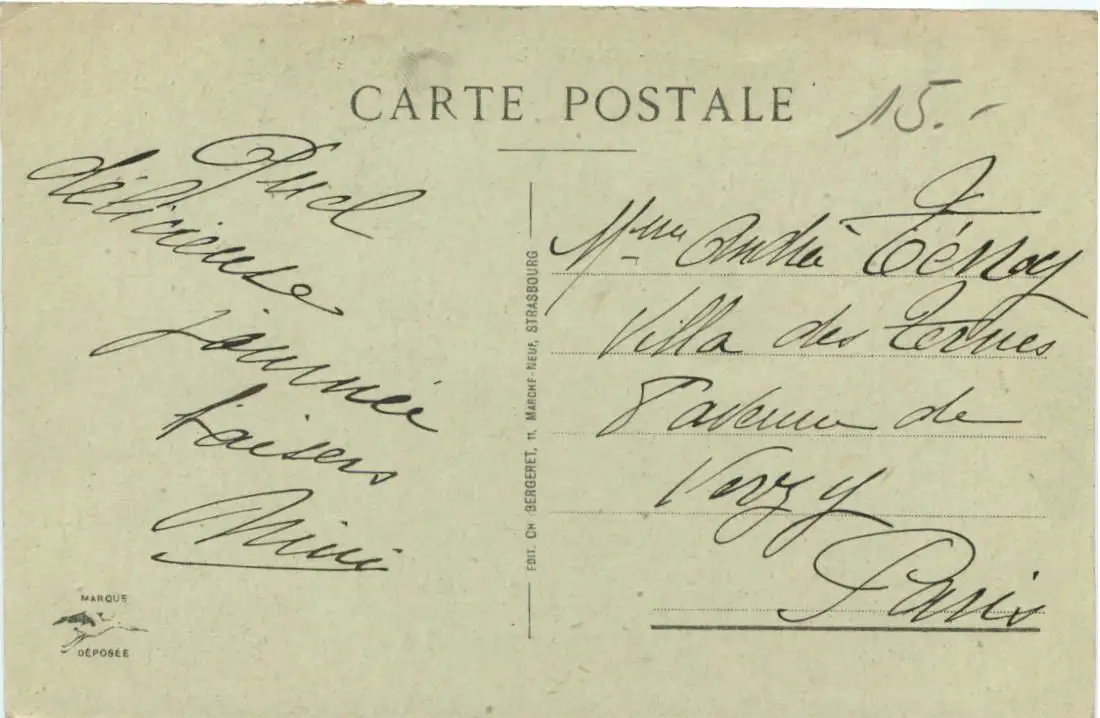 CARTE POSTALE
15.-
Quel
délicieuse
journée
baisers
Mimi
MARQUE
DÉPOSÉE
EDIT. CH. BERGERET, 11, MARCHÉ-NEUF, STRASBOURG
Mme André
Villa des Ternes
8 avenue de
Verzy
Paris